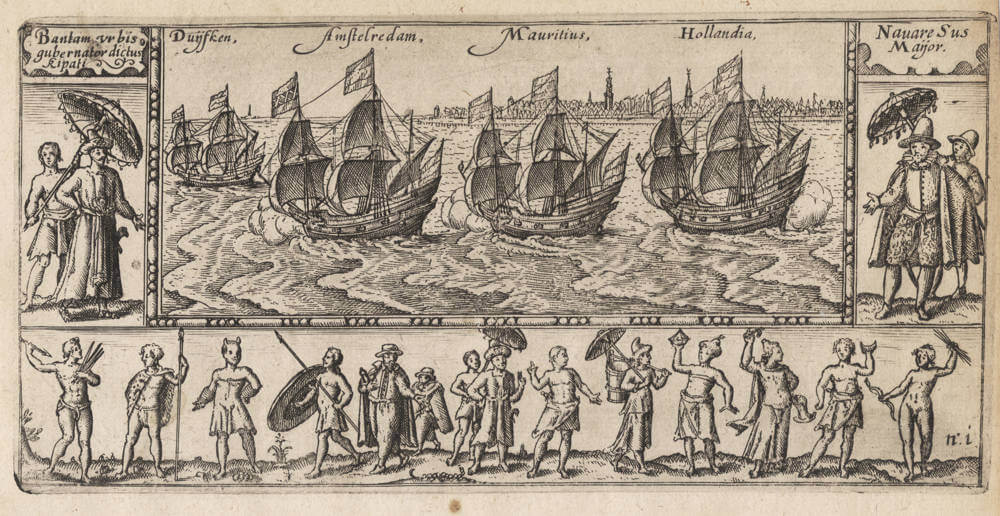 Bantam, vr bis
gubernator dictus
kipati
Duijfken,
Amstelredam,
Mauritius,
Hollandia,
Navare Sus
Maijor.
n°. i